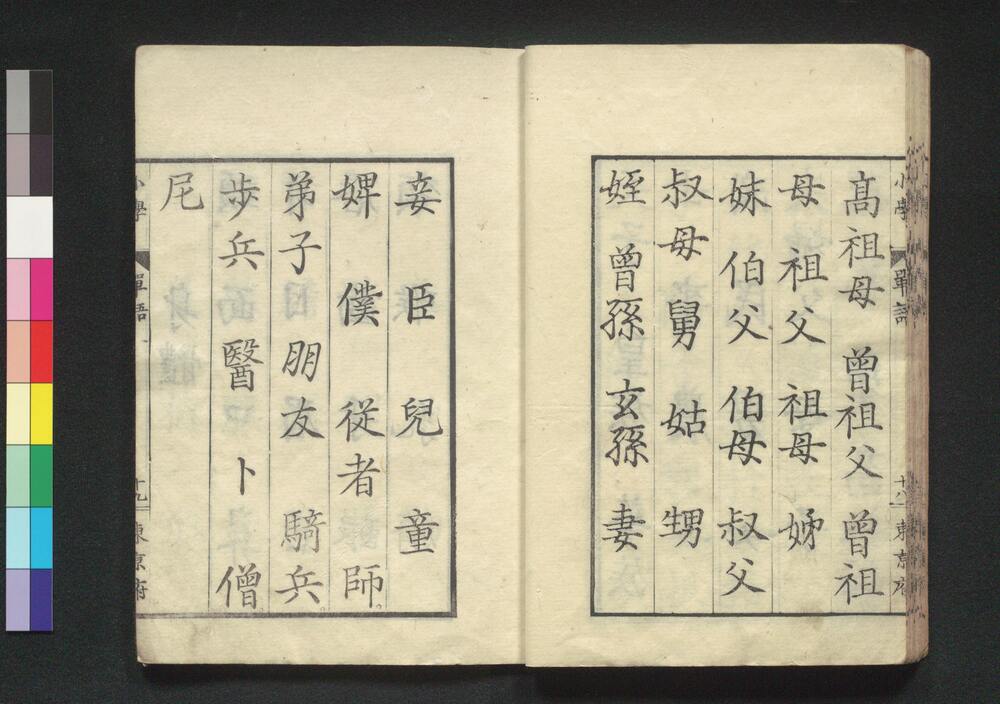 髙祖母 曾祖父 曾祖
母 祖父 祖母 姊
妹 伯父 伯母 叔父
叔母 舅 姑 甥
姪 曾孫 玄孫 妻
小學 單語 十八 東京府
妾 臣 兒 童
婢 僕 従者 師
弟子 朋友 騎兵
歩兵 醫 卜 僧
尼
小學 單語 十九 東京府